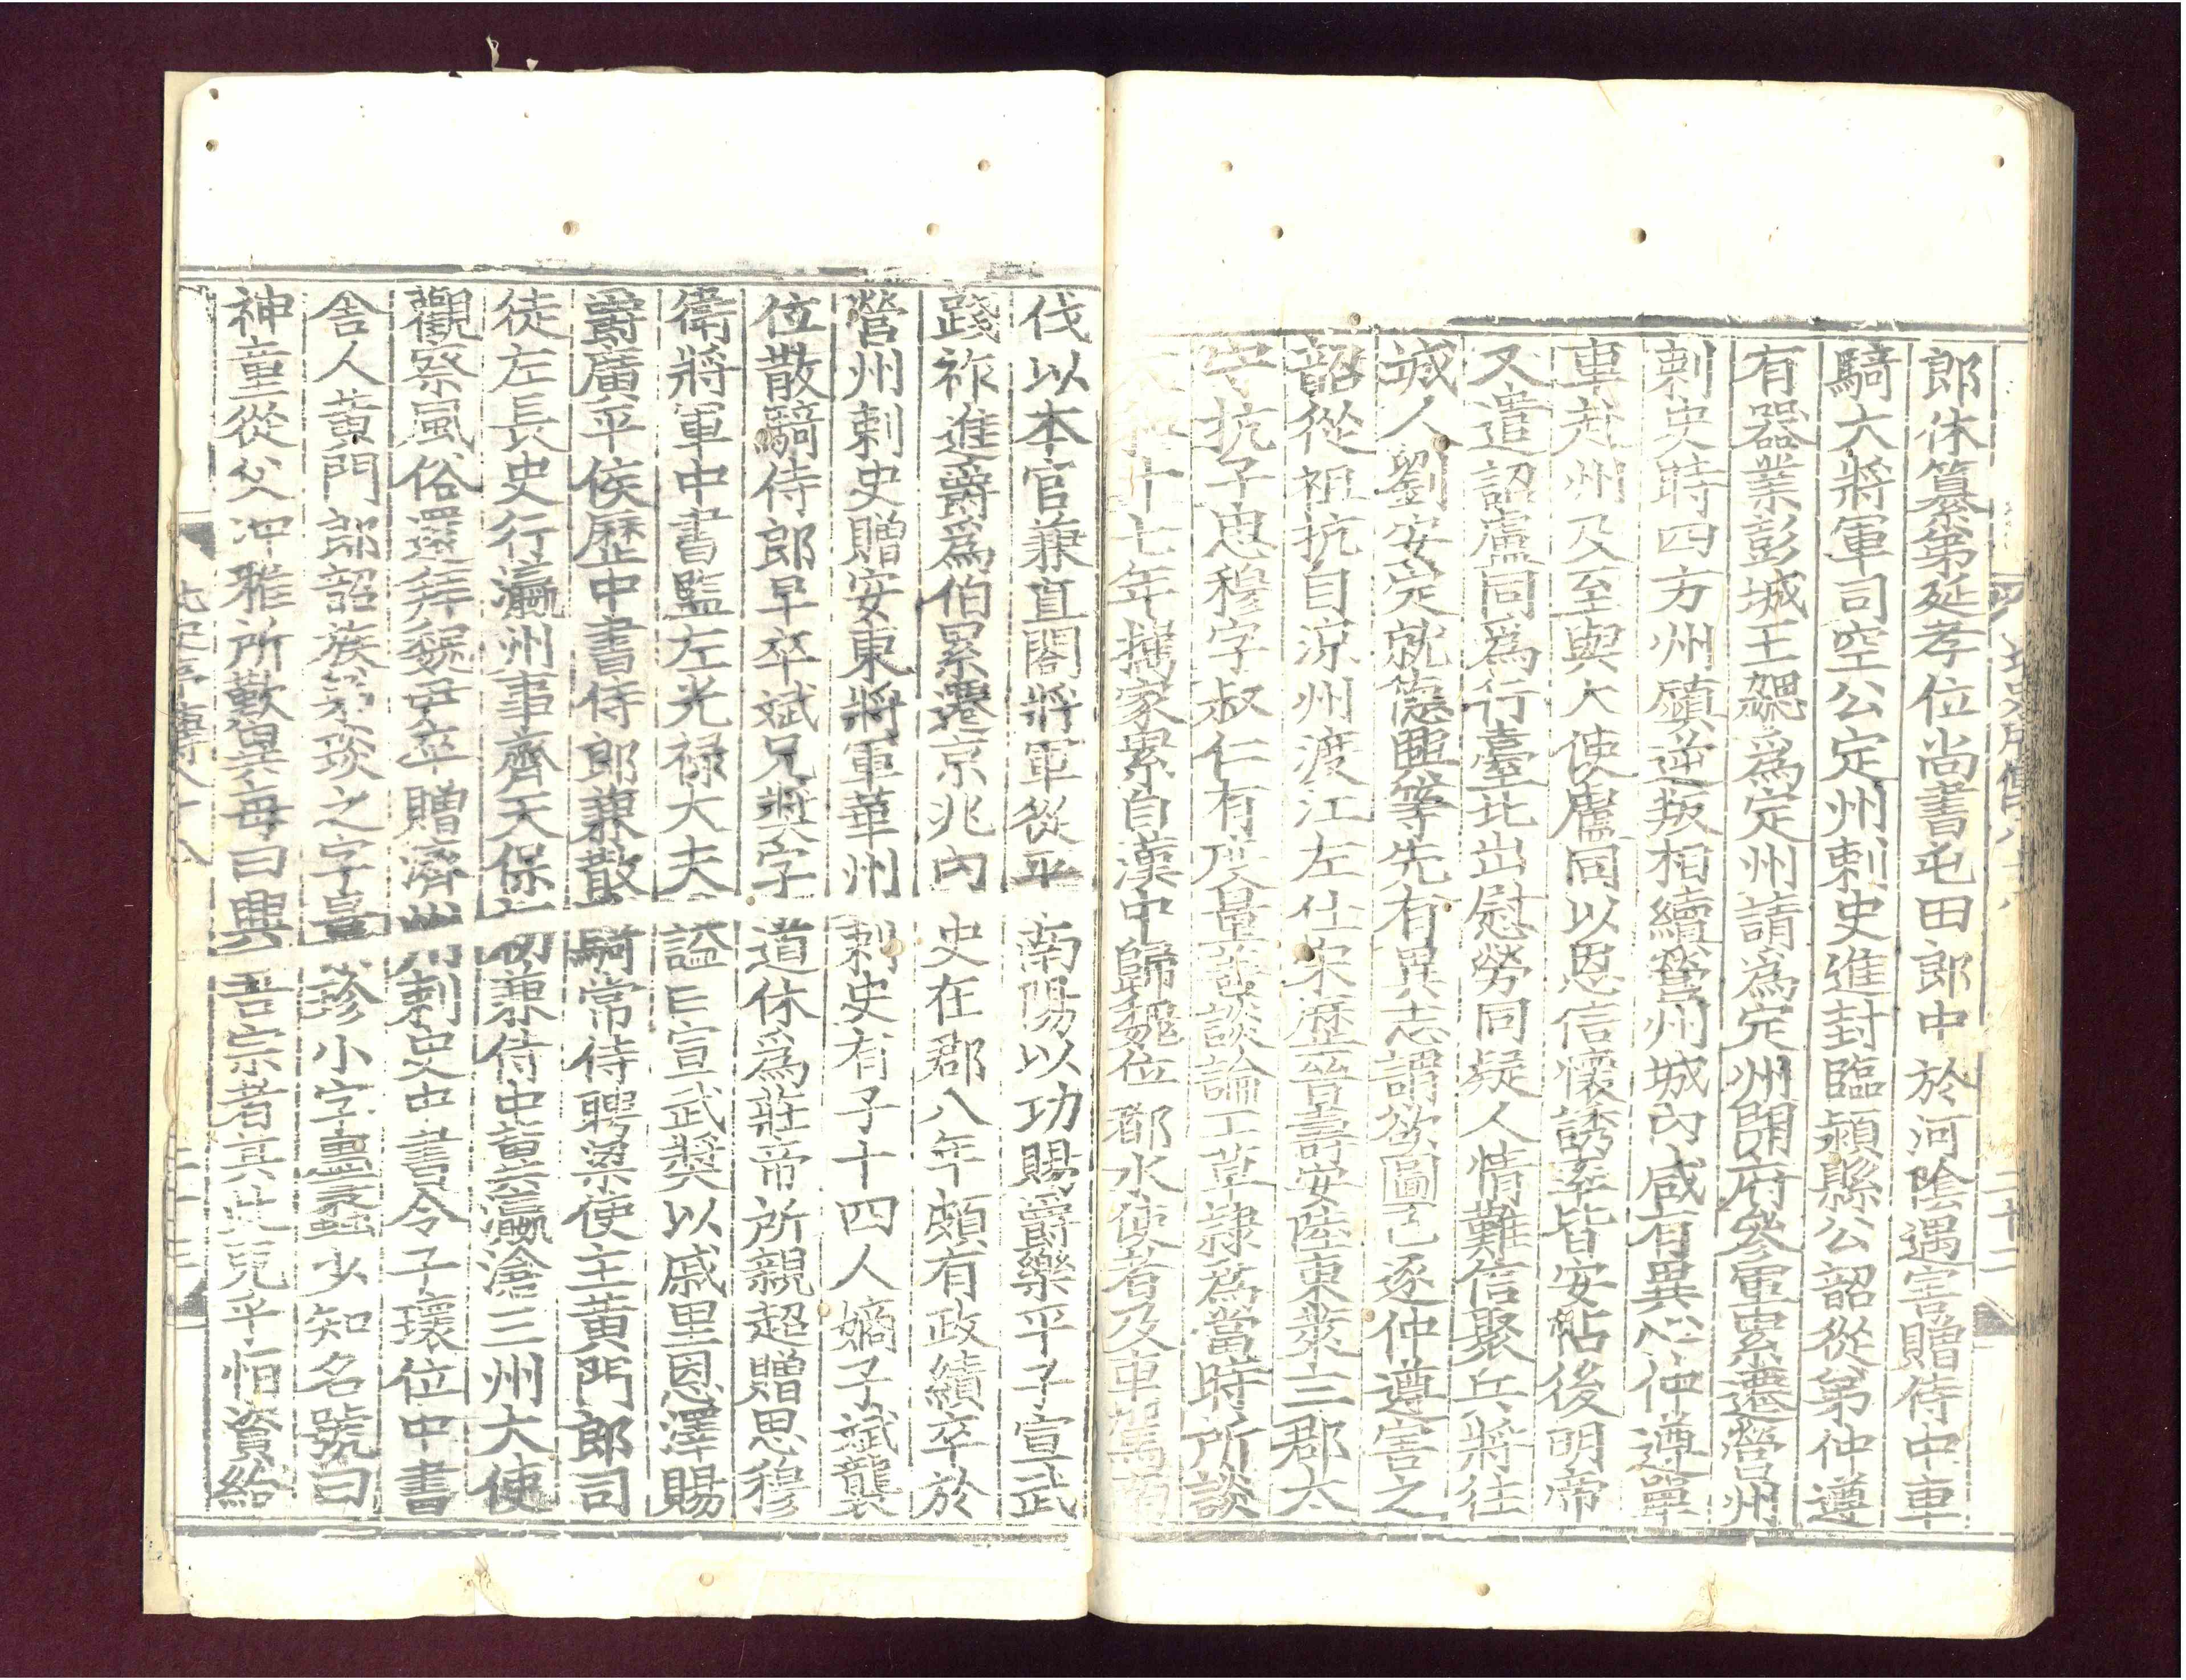 郎休纂弟延孝位尚書屯田郎中於河陰遇害贈侍中車
騎大將軍司空公定州刺史進封臨潁縣公韶從弟仲遵
有器業彭城王勰爲定州請爲定州開府參軍累遷營州
刺史時四方州鎮逆叛相續營州城內咸有異心仲遵單
車赴州及至與大使盧同以恩信懷誘率皆安帖後明帝
又遣詔盧同爲行臺北出慰勞同疑人情難信聚兵將往
城人劉安定就德興等先有異志謂欲圖己遂仲遵害之
韶從祖抗自涼州渡江左仕宋歷晉壽安陸東萊三郡太
守抗子思穆字叔仁有度量善談論工草隸爲當時所談
十七年攜家累自漢中歸魏位 都水使者及車駕南
伐以本官兼直閣將軍從平南陽以功賜爵樂平子宣武
踐祚進爵爲伯累遷京兆內史在郡八年頗有政績卒於
營州刺史贈安東將軍華州刺史有子十四人嫡子斌襲
位散騎侍郎早卒斌兄獎字道休爲莊帝所親超贈思穆
衛將軍中書監左光祿大夫謚曰宣武獎以戚里恩澤賜
爵廣平侯歷中書侍郎兼散騎常侍聘梁使主黃門郎司
徒左長史行瀛州事齊天保初兼侍中冀瀛滄三州大使
觀察風俗還拜魏尹卒贈濟州刺史中書令子瓌位中書
舍人黃門郎韶族弟琰之字景珍小字墨蠡少知名號曰
神童從父沖雅所歎異每曰興吾宗者其此兒乎恒資給